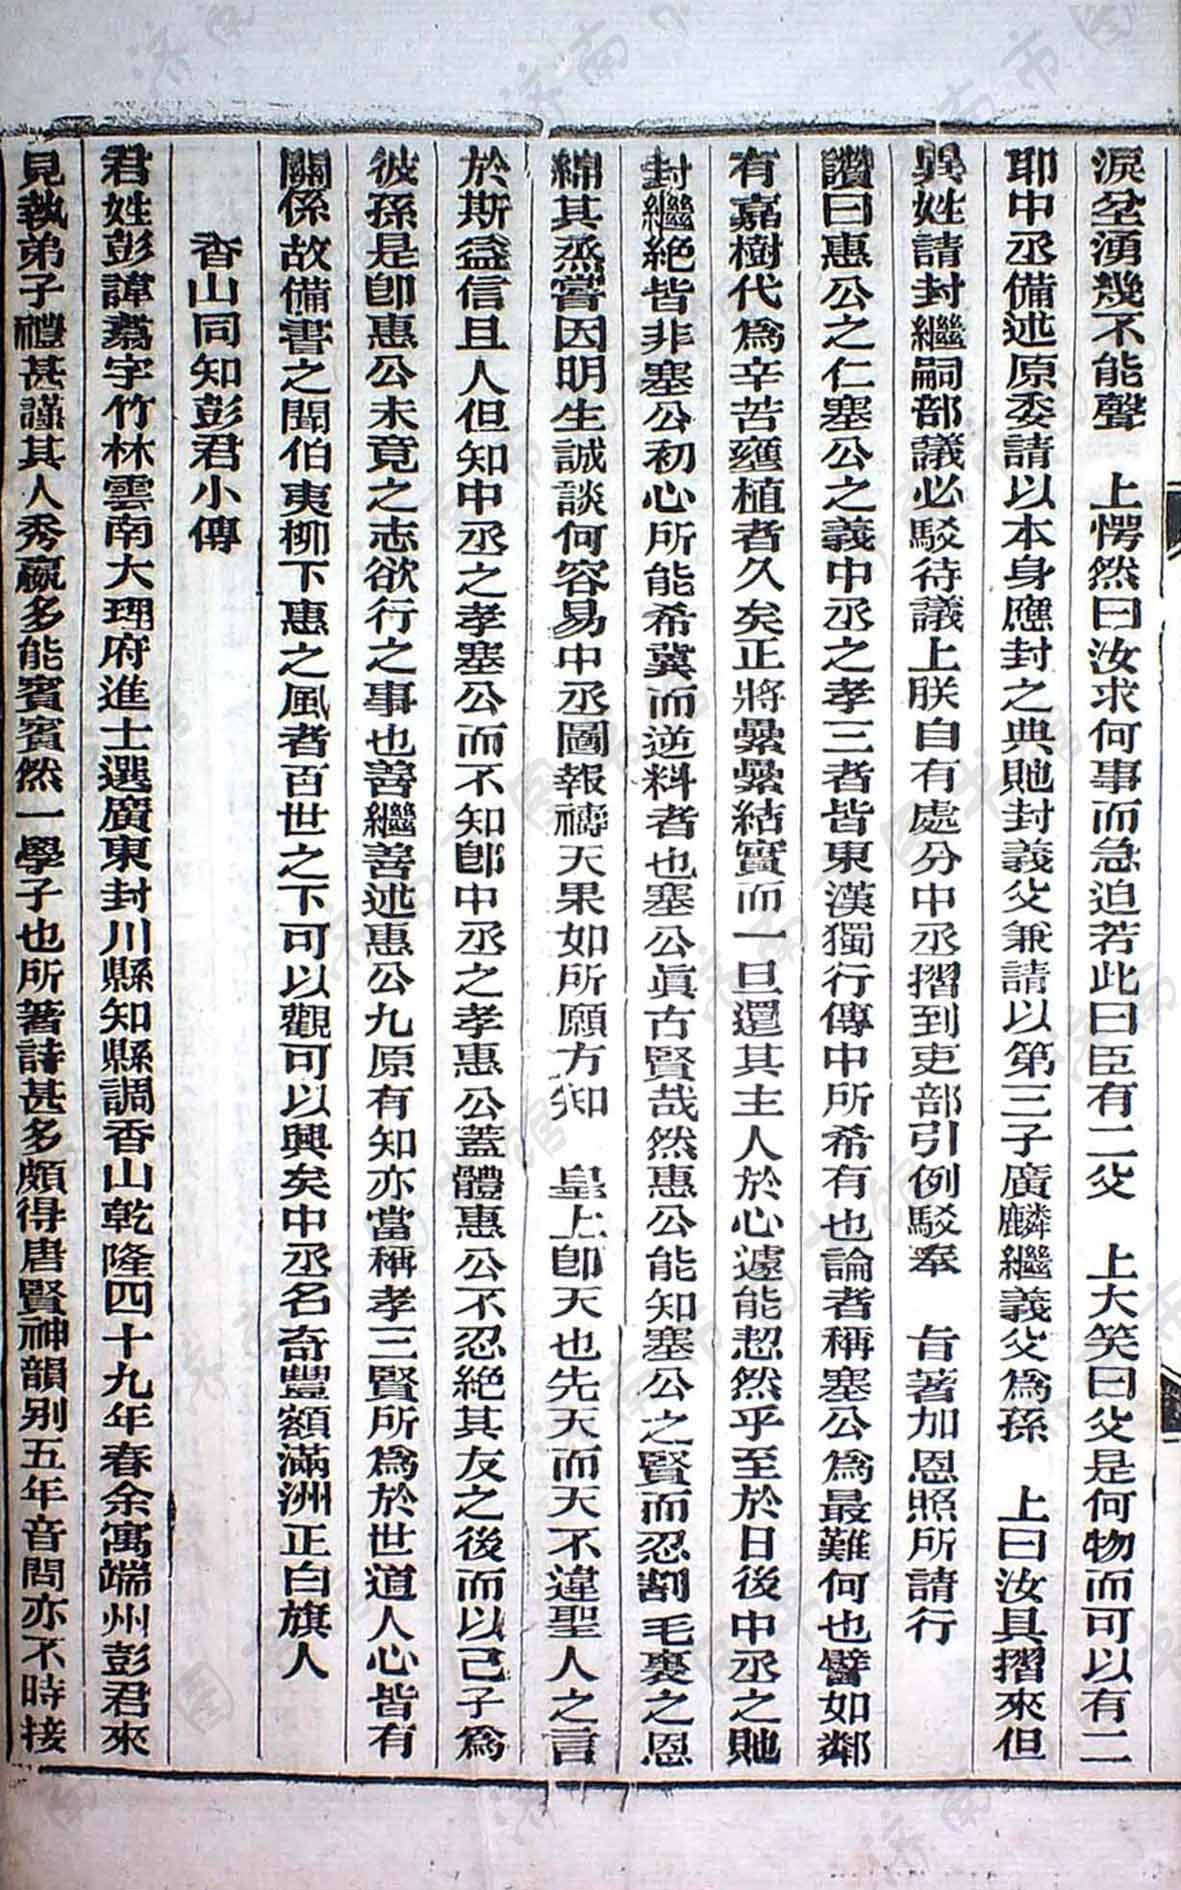 淚坌湧幾不能聲　上愕然曰汝求何事而急迫若此曰臣有二父　上大笑曰父是何物而可以有二
耶中丞備述原委請以本身應封之典貤封義父兼請以第三子廣麟繼義父爲孫　上曰汝具摺來但
異姓請封繼嗣部議必駁待議上朕自有處分中丞摺到吏部引例駁奉　旨著加恩照所請行
讚曰惠公之仁塞公之義中丞之孝三者皆東漢獨行傳中所希有也論者稱塞公爲最難何也譬如鄰
有嘉樹代爲辛苦壅植者久矣正將纍纍結實而一旦還其主人於心遽能恝然乎至於日後中丞之貤
封繼絕皆非塞公初心所能希冀而逆料者也塞公眞古賢哉然惠公能知塞公之賢而忍割毛裏之恩
綿其烝嘗因明生誠談何容易中丞圖報禱天果如所願方知　皇上卽天也先天而天不違聖人之言
於斯益信且人但知中丞之孝塞公而不知卽中丞之孝惠公蓋體惠公不忍絕其友之後而以己子爲
彼孫是卽惠公未竟之志欲行之事也善繼善述惠公九原有知亦當稱孝三賢所爲於世道人心皆有
關係故備書之聞伯夷柳下惠之風者百世之下可以觀可以興矣中丞名奇豐額滿洲正白旗人
香山同知彭君小傳
君姓彭諱翥字竹林雲南大理府進士選廣東封川縣知縣調香山乾隆四十九年春余寓端州彭君來
見執弟子禮甚謹其人秀羸多能賓賓然一學子也所著詩甚多頗得唐賢神韻别五年音問亦不時接
济南市图书馆